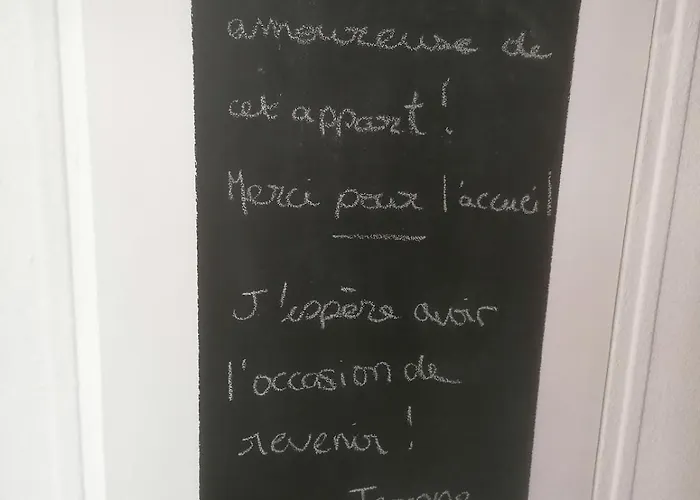 amoureuse de
cet appart !
Merci pour l'accueil
J'espère avoir
l'occasion de
revenir !